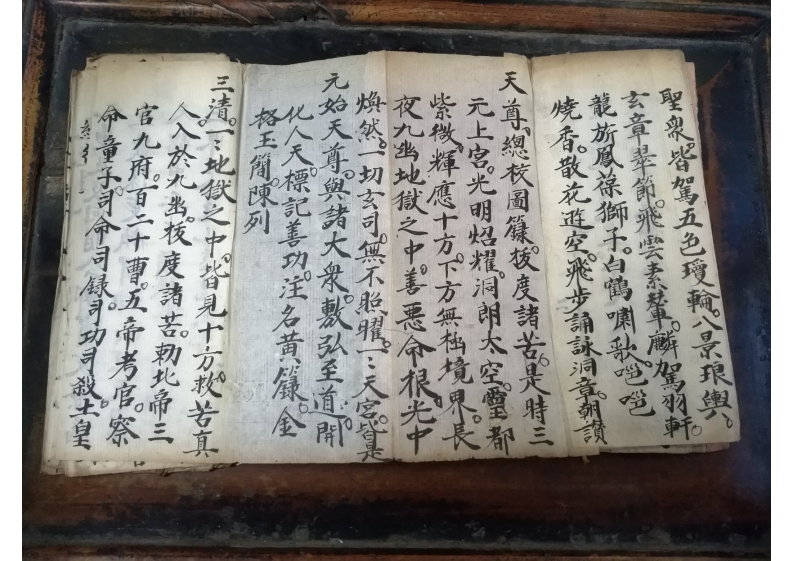 聖衆。皆駕五色瓊輪。八景琅輿。
玄章翠節。飛雲素輦。麟駕羽軒
龍旂鳳葆獅子。白鶴嘯歌嗈嗈
燒香。散花遊空。飛步誦詠洞章朝讚
天尊。總校圖籙。拔度諸苦。是時三
元上宮。光明炤耀。洞朗太空。靈都
紫微。輝應十方。下方無極境界。長
夜九幽地獄之中。善惡命根。光中
煥然。一切玄司。無不照曜。一〻天宮。皆是
元始天尊。與諸大衆。敷弘至道。開
化人天。標記善功。注名黃籙。金
格玉簡。陳列
三清。一〻地獄之中。皆見十方救苦真
人入於九幽。拔度諸苦。勅北帝三
官九府。百二十曹。五帝考官。察
命童子。司命司錄。司功司殺。土皇